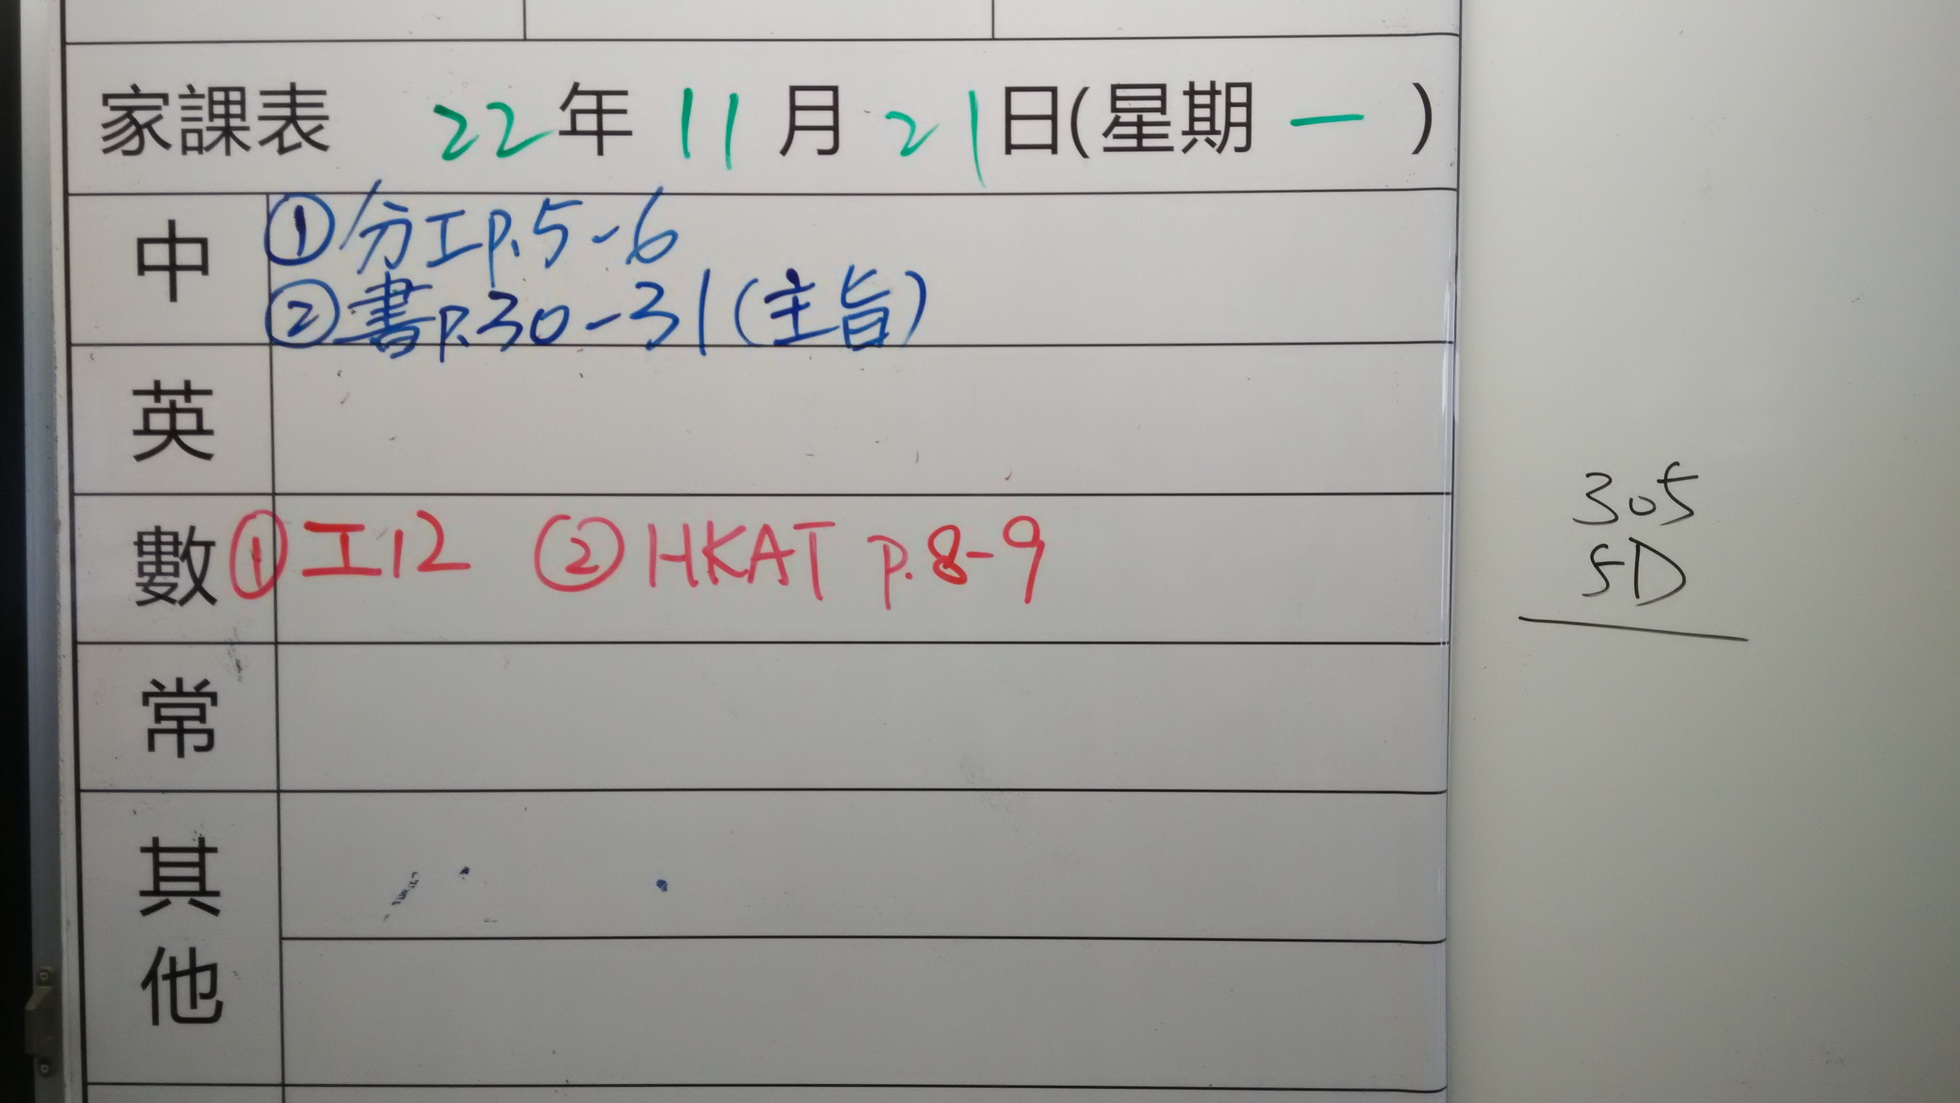 家課表 22年11月21日(星期一)
中 ①分工p.5-6
②書p.30-31(主旨)
英
數 ①工12 ②HKAT p.8-9
常
其他
305
5D